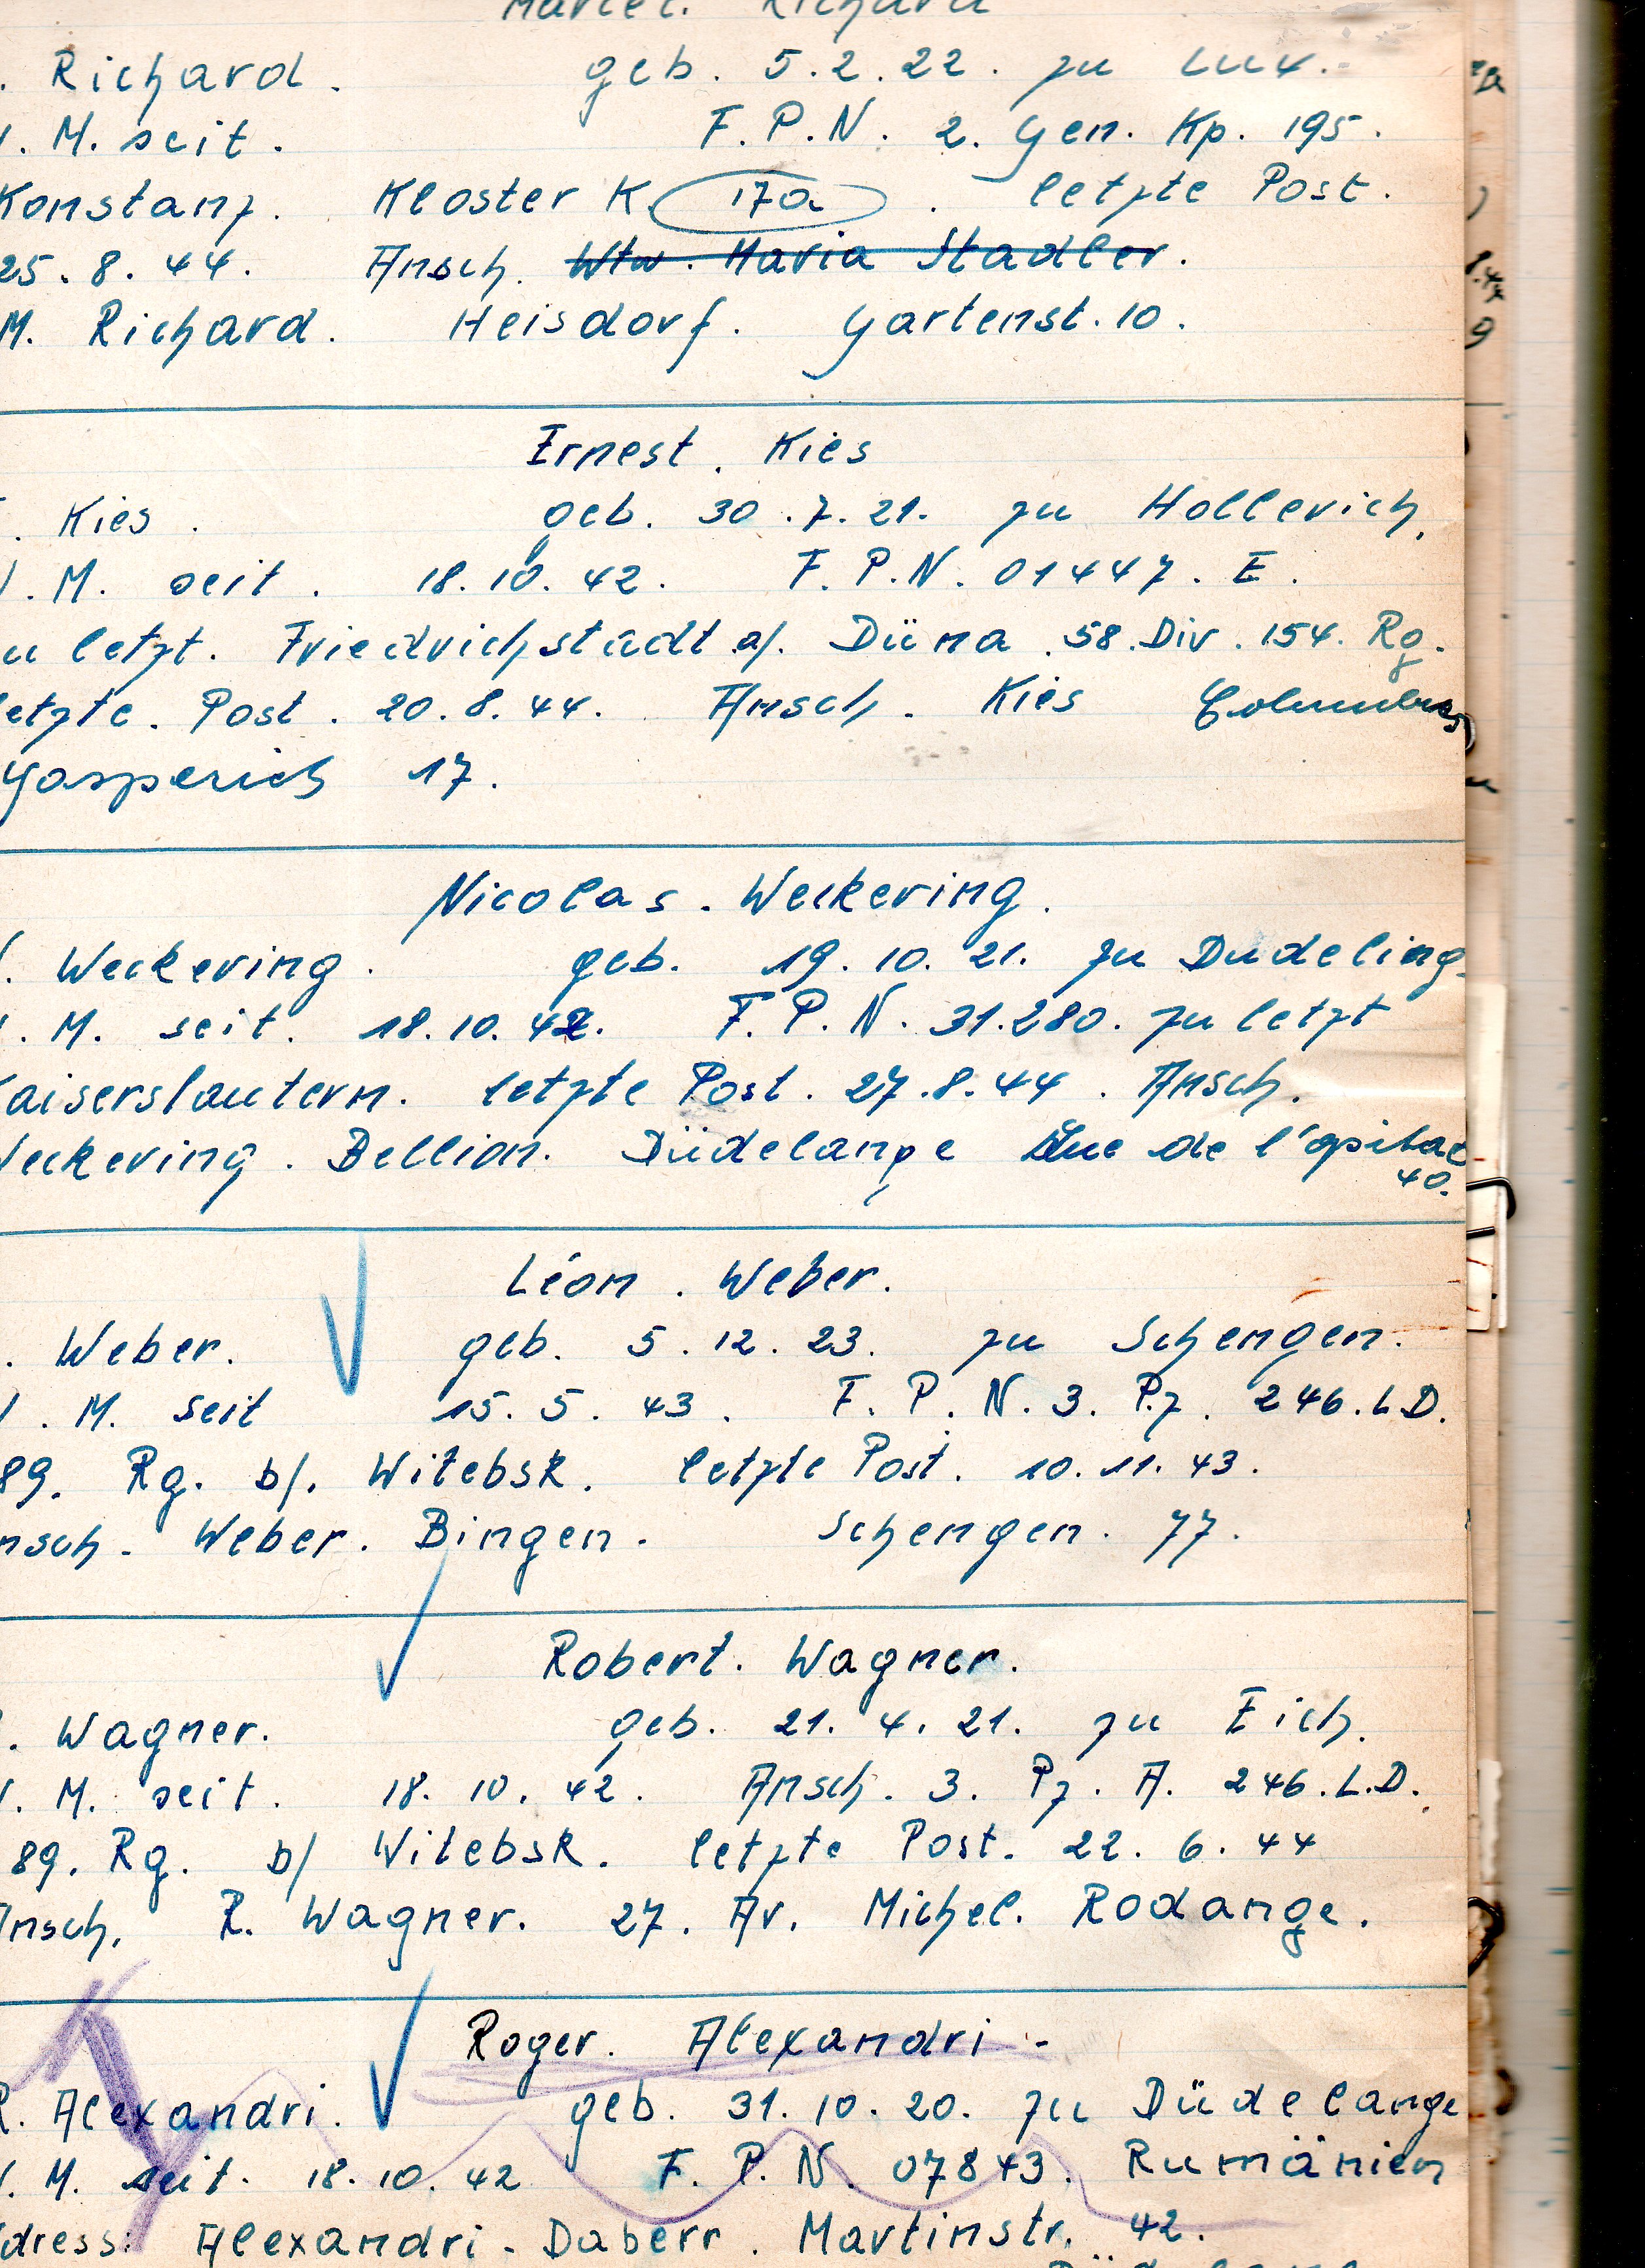 Marcel. Richard
. Richard. geb. 5.2.22. zu Lux.
. M. seit. F.P.N. 2. Gen. Kp. 195.
Konstanz. Kloster K 17a. letzte Post.
25.8.44. Ansch. Wtw. Maria Stadler.
M. Richard. Heisdorf. Gartenst. 10.
Ernest. Kies
. Kies. geb. 30.7.21. zu Hollerich,
. M. seit. 18.10.42. F.P.N. 01447. E.
u letzt. Friedrichstadt a/. Düna. 58. Div. 154. Rg.
etzte. Post. 20.8.44. Ansch. Kies Columbus
Gasperich 17.
Nicolas. Weckering.
. Weckering. geb. 19.10.21. zu Dudeling.
. M. seit. 18.10.42. F.P.N. 31.280. zu letzt
Kaiserslautern. letzte Post. 27.8.44. Ansch.
Weckering. Bellion. Düdelange Rue de l'opital
40.
Léon. Weber.
. Weber. geb. 5.12.23. zu Schengen.
. M. seit 15.5.43. F.P.N. 3. Pz. 246. L.D.
89. Rg. b/. Witebsk. letzte Post. 10.11.43.
nsch. Weber. Bingen. Schengen. 77.
Robert. Wagner.
. Wagner. geb. 21.4.21. zu Eich.
. M. seit. 18.10.42. Ansch. 3. Pz. A. 246. L.D.
89. Rg. b/ Witebsk. letzte Post. 22.6.44
Ansch. R. Wagner. 27. Av. Michel. Rodange.
Roger. Alexandri -
R. Alexandri. geb. 31.10.20. zu Düdelange
. M. seit. 18.10.42 F.P.N. 07843. Rumänien
dress: Alexandri - Daberr. Martinstr. 42.